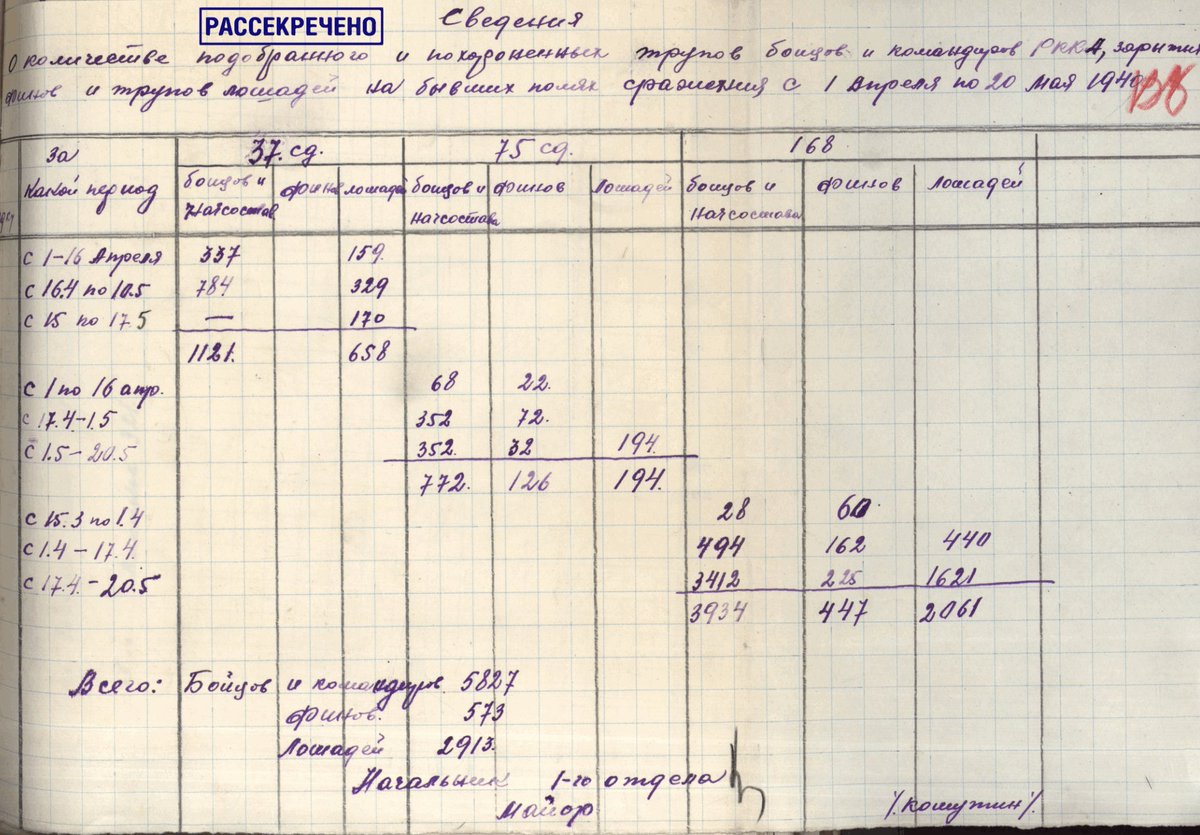 РАССЕКРЕЧЕНО
Сведения
О количестве подобранного и похороненных трупов бойцов и командиров РККА, зарытых
финнов и трупов лошадей на бывших полях сражения с 1 Апреля по 20 мая 1940
За какой период
37 сд. 75 сд. 168
бойцов и начсостава финнов лошадей бойцов и начсостава финнов лошадей бойцов и начсостава финнов лошадей
с 1-16 Апреля 337 159.
с 16.4 по 10.5 784 329
с 15 по 17.5 — 170
1121. 658
с 1 по 16 апр. 68 22.
с 17.4-1.5 352 72.
с 1.5-20.5 352. 32 194.
772. 126 194.
с 15.3 по 1.4 28 60
с 1.4-17.4. 494 162 440
с 17.4.-20.5 3412 225 1621
3934 447 2061
Всего: Бойцов и командиров 5827
финнов. 573
Лошадей 2913.
Начальник 1-го отдела
Майор /.Комужин/.